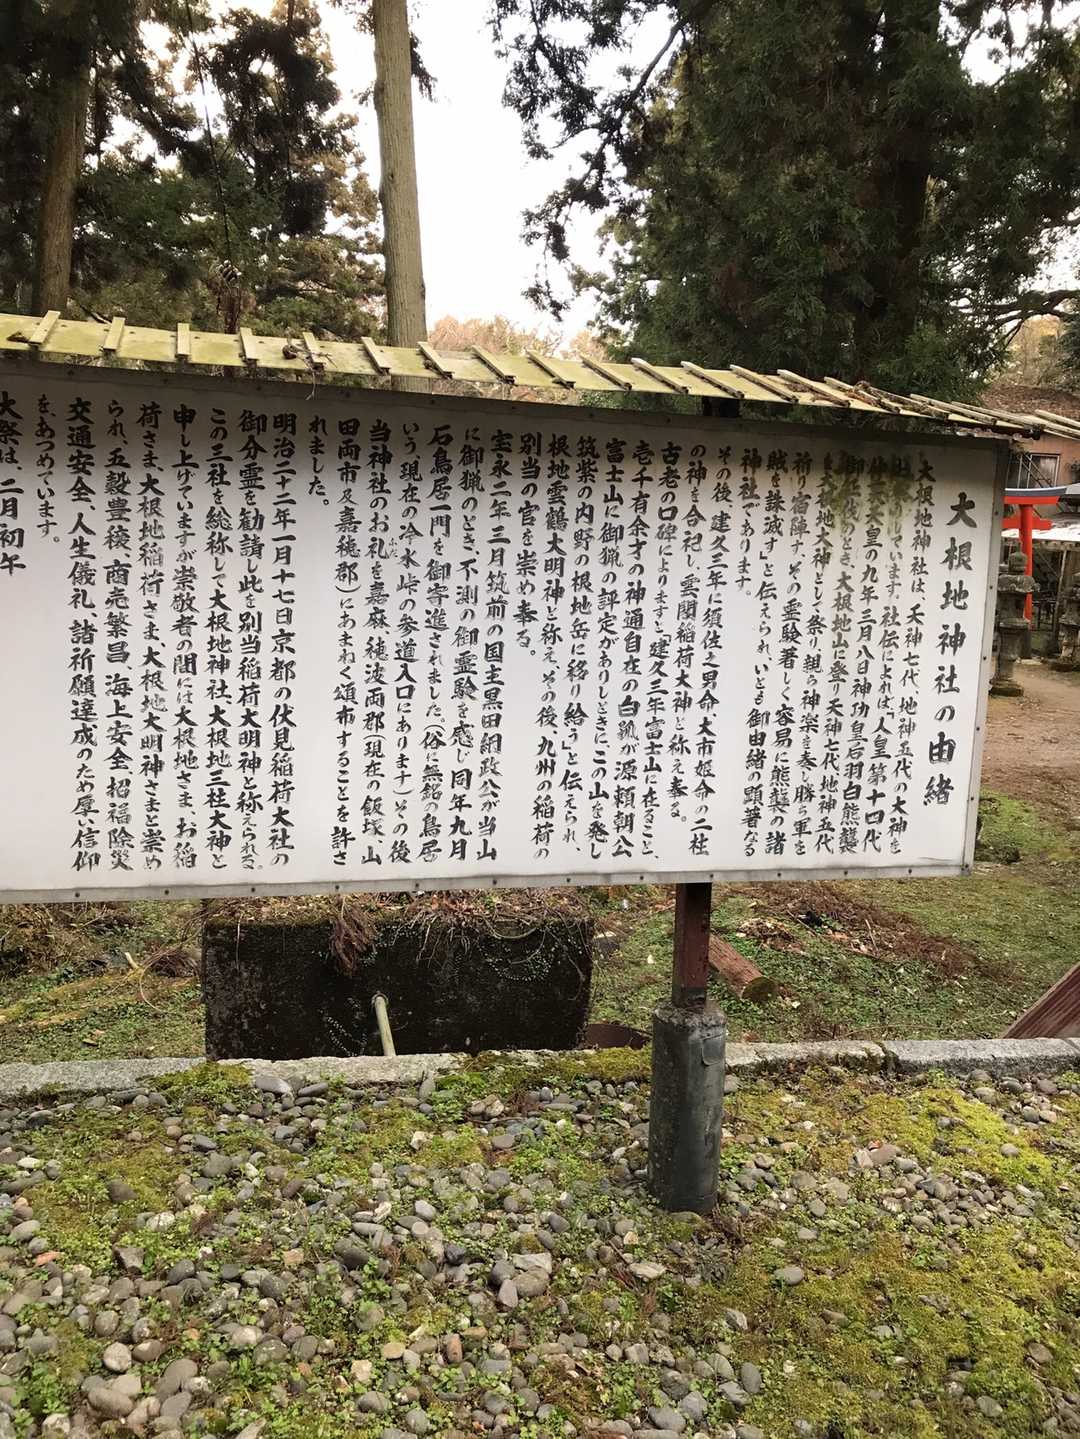 大根地神社の由緒
大根地神社は、天神七代、地神五代の大神を
お祀りしています。社伝によれば「人皇第十四代
仲哀天皇の九年三月八日神功皇后羽白熊襲
御征伐のとき、大根地山に登り天神七代地神五代
を大根地大神として祭り、親ら神楽を奏し勝ち軍を
祈り宿陣す、その霊験著しく容易に熊襲の諸
賊を誅滅す」と伝えられ、いとも御由緒の顕著なる
神社であります。
その後、建久三年に須佐之男命、大市姫命の二柱
の神を合祀し、雲閣稲荷大神と称え奉る。
古老の口碑によりますと「建久三年富士山に在ること、
壱千有余才の神通自在の白狐が源頼朝公
富士山に御猟の評定がありしときに、この山を発し
筑紫の内野の根地岳に移り給う」と伝えられ、
根地雲鶴大明神と称え、その後、九州の稲荷の
別当の官を崇め奉る。
宝永二年三月筑前の国主黒田綱政公が当山
に御猟のとき、不測の御霊験を感じ同年九月
石鳥居一門を御寄進されました。(俗に無銘の鳥居
いう、現在の冷水峠の参道入口にあります)その後
当神社のお礼を嘉麻穂波両郡(現在の飯塚、山
田両市及嘉穂郡)にあまねく頒布することを許さ
れました。
明治二十二年一月十七日京都の伏見稲荷大社の
御分霊を勧請し此を別当稲荷大明神と称えられる。
この三社を総称して大根地神社、大根地三社大神と
申し上げていますが崇敬者の間には大根地さま、お稲
荷さま、大根地稲荷さま、大根地大明神さまと崇め
られ、五穀豊穣、商売繁昌、海上安全、招福除災
交通安全、人生儀礼、諸祈願達成のため厚い信仰
を、あつめています。
大祭は、二月初午